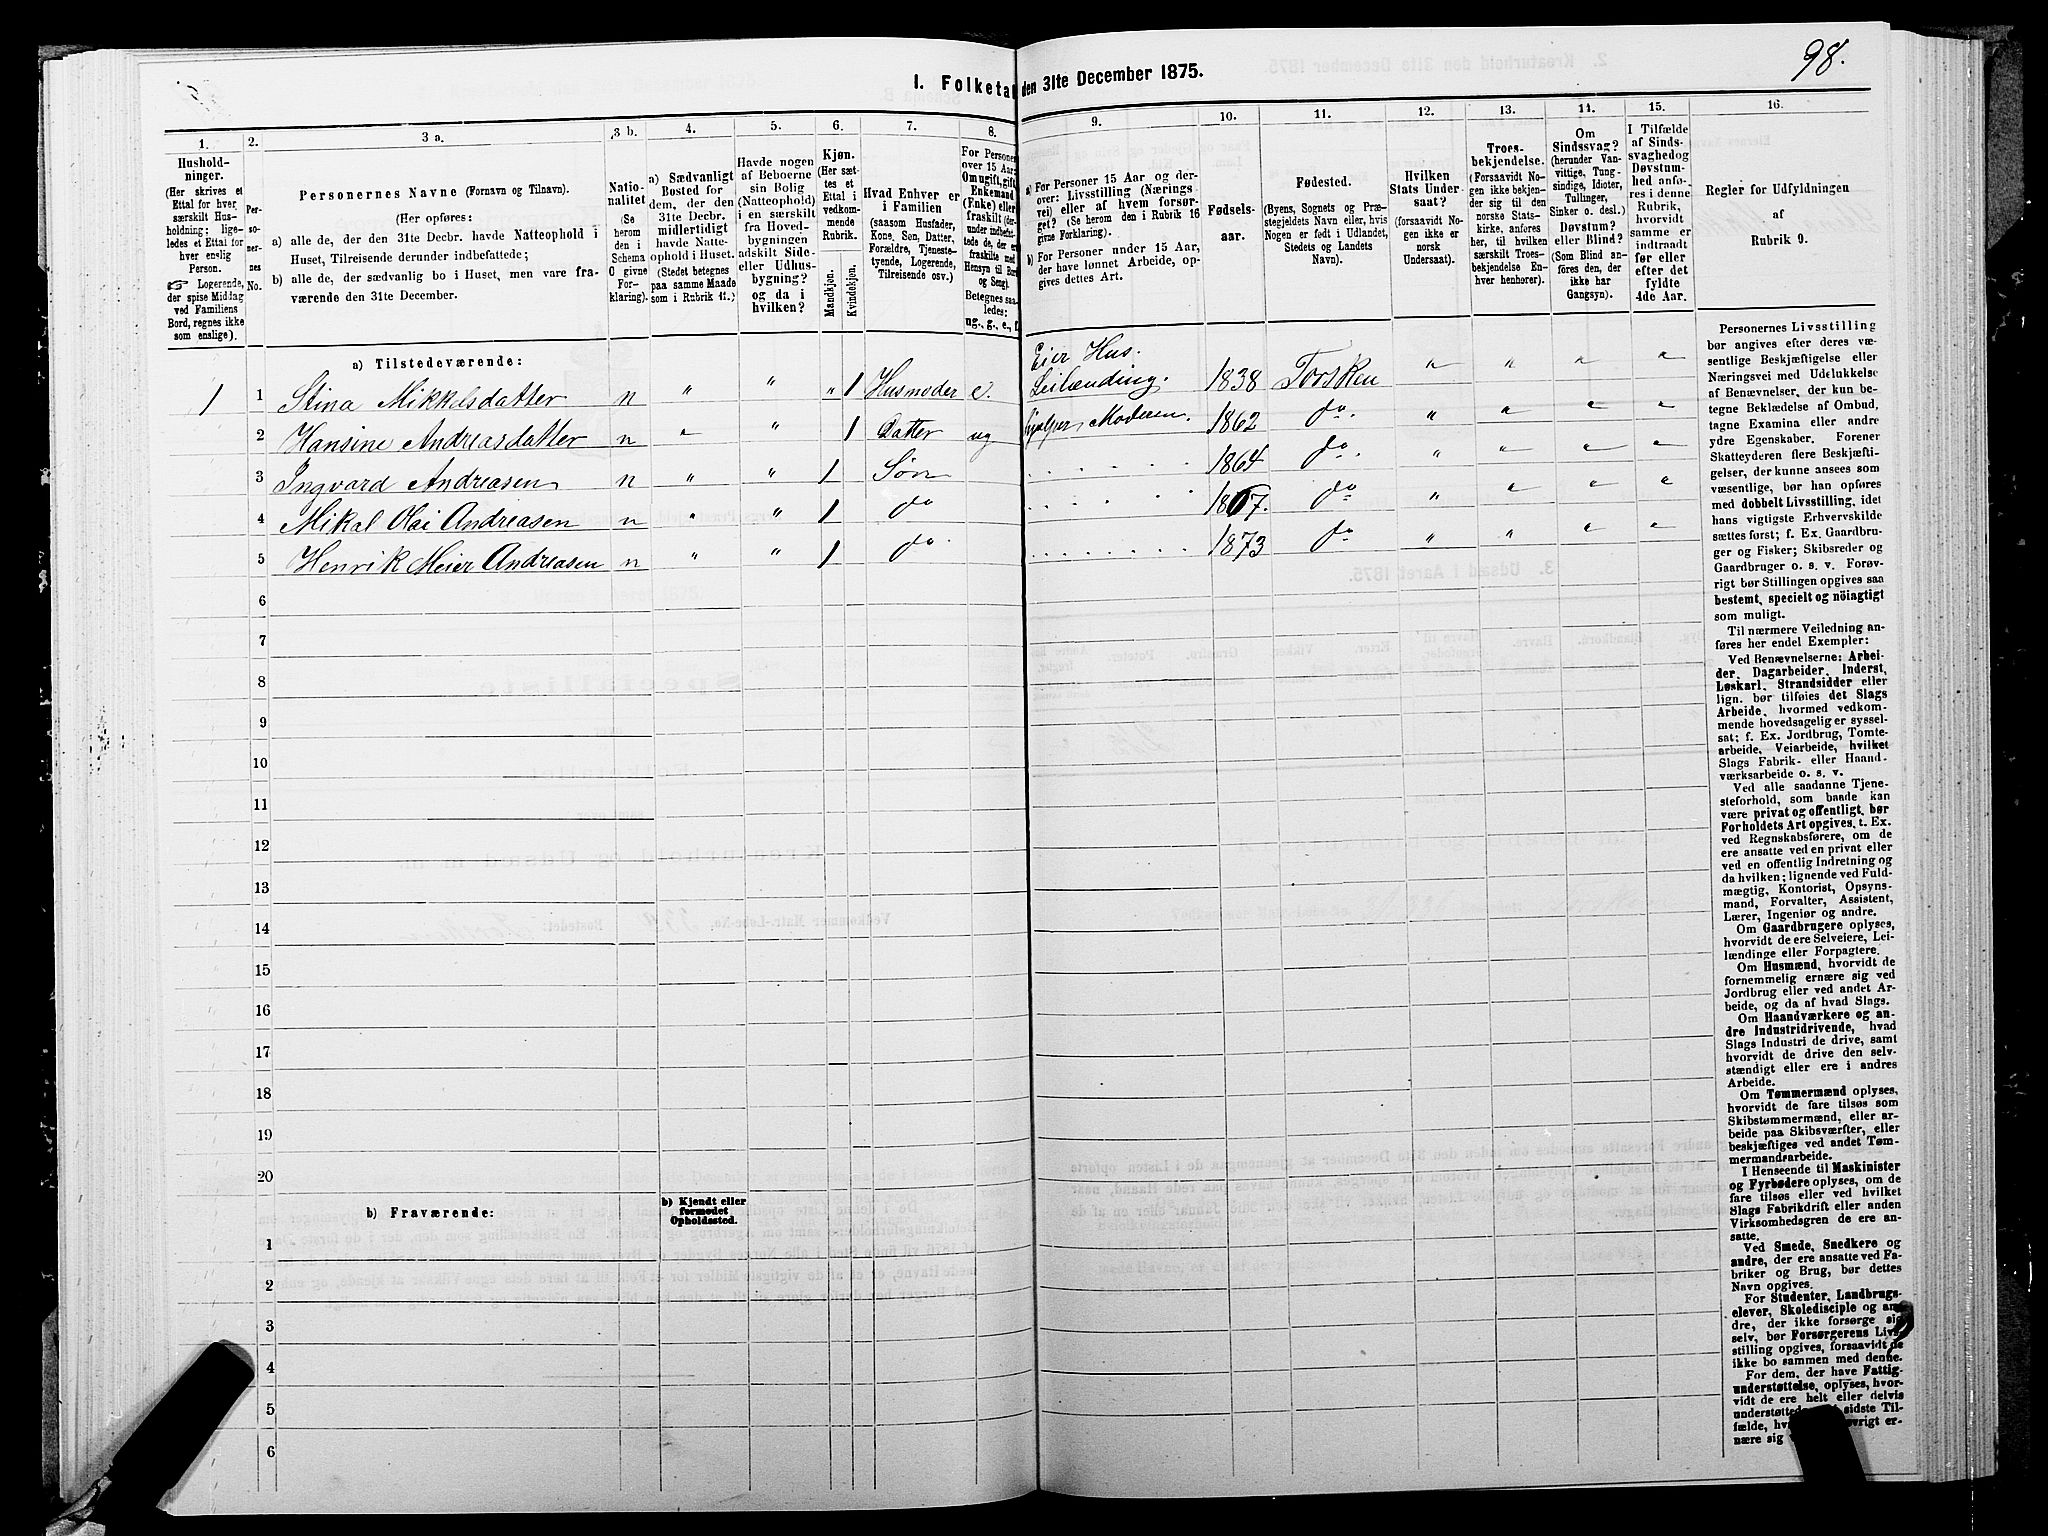 98.
I. Folketal den 31te December 1875.
1.
Hushold-
ninger.
(Her skrives et
Ettal for hver
særskilt Hus-
holdning; lige-
ledes et Ettal for
hver enslig
Person.
☞ Logerende,
der spise Middag
ved Familiens
Bord, regnes ikke
som enslige).
2.
Per-
so-
ner-
nes
No.
3 a.
Personernes Navne (Fornavn og Tilnavn).
(Her opføres:
a) alle de, der den 31te Decbr. havde Natteophold i
Huset, Tilreisende derunder indbefattede;
b) alle de, der sædvanlig bo i Huset, men vare fra-
værende den 31te December.
3 b.
Natio-
nalitet
(Se
herom
den i
Schema
O givne
For-
klaring).
4.
a) Sædvanligt
Bosted for
dem, der den
31te Decbr.
midlertidigt
havde Natte-
ophold i Huset.
(Stedet betegnes
paa samme Maade
som i Rubrik 11.)
5.
Havde nogen
af Beboerne
sin Bolig
(Natteophold)
i en særskilt
fra Hoved-
bygningen
adskilt Side-
eller Udhus-
bygning?
og da i
hvilken?
6.
Kjøn.
(Her sæt-
tes et
Ettal i
vedkom-
mende
Rubrik.)
Mandkjøn.
Kvindekjøn.
7.
Hvad Enhver er
i Familien
(saasom Husfader,
Kone, Søn, Datter,
Forældre, Tjeneste-
tyende, Logerende,
Tilreisende osv.)
8.
For Personer
over 15 Aar:
Om ugift, gift,
Enkemand
(Enke) eller
fraskilt (der-
under indbefat-
tede de, der ere
fraskilte med
Hensyn til Bord
og Seng).
Betegnes saa-
ledes:
ug., g., e., f.
9.
a) For Personer 15 Aar og der-
over: Livsstilling (Nærings
vei) eller af hvem forsør-
get? (Se herom den i Rubrik 16
givne Forklaring).
b) For Personer under 15 Aar,
der have lønnet Arbeide, op-
gives dettes Art.
10.
Fødsels-
aar.
11.
Fødested.
(Byens, Sognets og Præ-
stegjeldets Navn eller, hvis
Nogen er født i Udlandet,
Stedets og Landets
Navn).
12.
Hvilken
Stats Under-
saat?
(forsaavidt No-
gen ikke er
norsk
Undersaat).
13.
Troes-
bekjendelse.
(Forsaavidt No-
gen ikke bekjen-
der sig til den
norske Stats-
kirke, anføres
her, til hvilken
særskilt Troes-
bekjendelse En-
hver henhører).
14.
Om
Sindssvag?
(herunder Van-
vittige, Tung-
sindige, Idioter,
Tullinger,
Sinker o. desl.)
Døvstum?
eller Blind?
(Som Blind an-
føres den, der
ikke har
Gangsyn).
15.
I Tilfælde
af Sinds-
svaghed og
Døvstum-
hed anfø-
res i denne
Rubrik,
hvorvidt
samme er
indtraadt
før eller
efter det
fyldte
4de Aar.
16.
Regler for Udfyldningen
af
Rubrik 9.
a) Tilstedeværende:
1 1 Stina Mikkelsdatter n " " " 1 Husmoder e. Eier Hus. Leilænding. 1838 Torsken " " " "
2 Hansine Andreasdatter n " " 1 Datter ug hjælper Moderen. 1862 do. " " " "
3 Ingvard Andreasen n " " 1 Søn 1864 do. " " " "
4 Mikal Olai Andreasen n " " 1 do 1867. do " " " "
5 Henrik Meier Andreasen n " " 1 do 1873 do " " " "
6
7
8
9
10
11
12
13
14
15
16
17
18
19
20
b) Fraværende:
b) Kjendt eller
formodet
Opholdssted.
1
2
3
4
5
6
Personernes Livsstilling
bør angives efter deres væ-
sentlige Beskjæftigelse eller
Næringsvei med Udelukkelse
af Benævnelser, der kun be-
tegne Beklædelse af Ombud,
tagne Examina eller andre
ydre Egenskaber. Forener
Skatteyderen flere Beskjæfti-
gelser, der kunne ansees som
væsentlige, bør han opføres
med dobbelt Livsstilling, idet
hans vigtigste Erhvervskilde
sættes først; f. Ex. Gaardbru-
ger og Fisker; Skibsreder og
Gaardbruger o. s. v. Forøv-
rigt bør Stillingen opgives saa
bestemt, specielt og nöiagtigt
som muligt.
Til nærmere Veiledning an-
føres her endel Exempler:
Ved Benævnelserne: Arbei-
der, Dagarbeider, Inderst,
Løskarl, Strandsidder eller
lign. bør tilføies det Slags
Arbeide, hvormed vedkom-
mende hovedsagelig er syssel-
sat; f. Ex. Jordbrug, Tomte-
arbeide, Veiarbeide, hvilket
Slags Fabrik- eller Haand-
værksarbeide o. s. v.
Ved alle saadanne Tjene-
steforhold, som baade kan
være privat og offentligt, bør
Forholdets Art opgives, t. Ex.
ved Regnskabsførere, om de
ere ansatte ved en privat eller
ved en offentlig Indretning og
da hvilken; lignende ved Fuld-
mægtig, Kontorist, Opsyns-
mand, Forvalter, Assistent,
Lærer, Ingeniør og andre.
Om Gaardbrugere oplyses,
hvorvidt de ere Selveiere, Lei-
lændinge eller Forpagtere.
Om Husmænd, hvorvidt de
fornemmelig ernære sig ved
Jordbrug eller ved andet Ar-
beide, og da af hvad Slags.
Om Haandværkere og an-
dre Industridrivende, hvad
Slags Industri de drive, samt
hvorvidt de drive den selv-
stændigt eller ere i andres
Arbeide.
Om Tømmermænd oplyses,
hvorvidt de fare tilsøs som
Skibstømmermænd, eller ar-
beide paa Skibsværfter, eller
beskjæftiges ved andet Tøm-
mermandsarbeide.
I Henseende til Maskinister
og Fyrbødere oplyses, om de
fare tilsøs eller ved hvilket
Slags Fabrikdrift eller anden
Virksomhedsgren de ere an-
satte.
Ved Smede, Snedkere og
andre, der ere ansatte ved Fa-
briker og Brug, bør dettes
Navn opgives.
For Studenter, Landbrugs-
elever, Skoledisciple og an-
dre, der ikke forsørge sig
selv, bør Forsørgerens Livs-
stilling opgives, forsaavidt de
ikke bo sammen med denne.
For dem, der have Fattig-
understøttelse, oplyses, hvor-
vidt de ere helt eller delvis
understøttede sidste Til-
fælde, øvrigt er-
nære sig